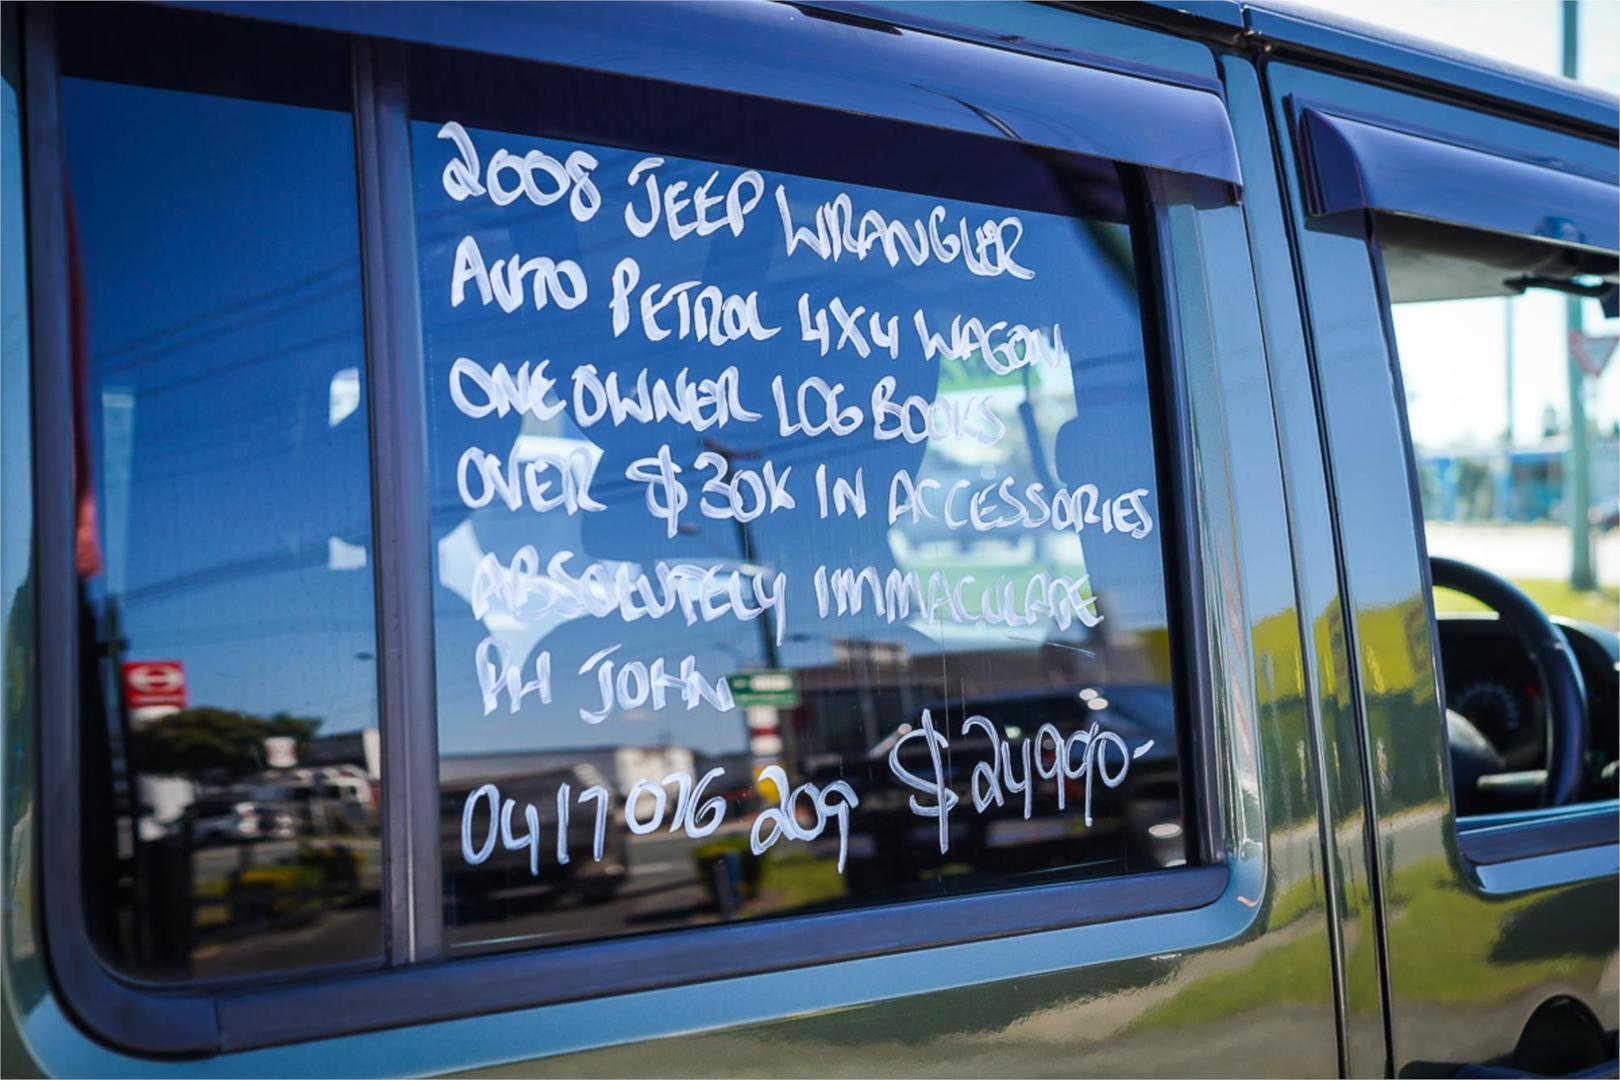 2008 JEEP WRANGLER
AUTO PETROL 4X4 WAGON
ONE OWNER LOG BOOKS
OVER $30K IN ACCESSORIES
ABSOLUTELY IMMACULATE
PH JOHN
0417 076 209 $24990-